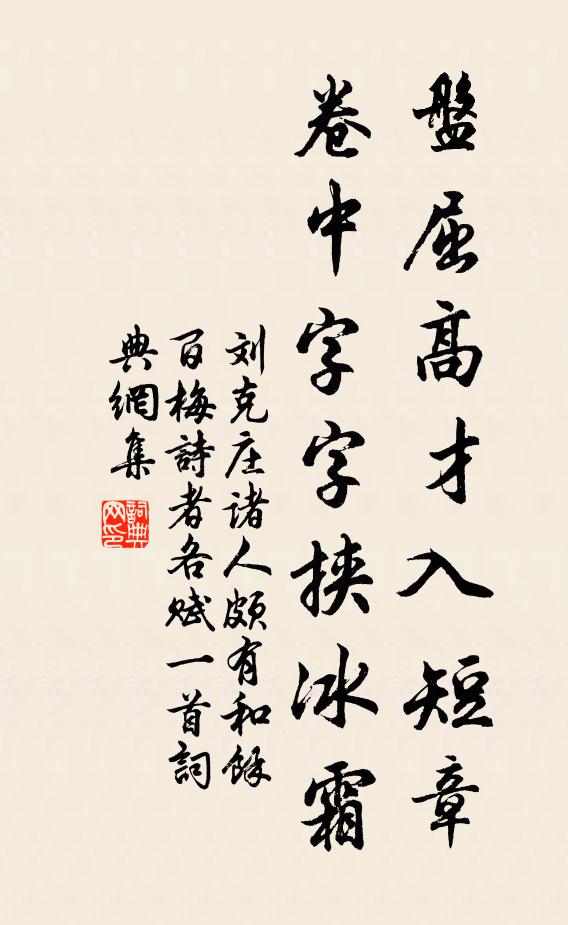 盤屈高才入短章
卷中字字挾冰霜
刘克庄諸人頗有和餘
百梅詩者各赋一首詞
典網集
詞典網印